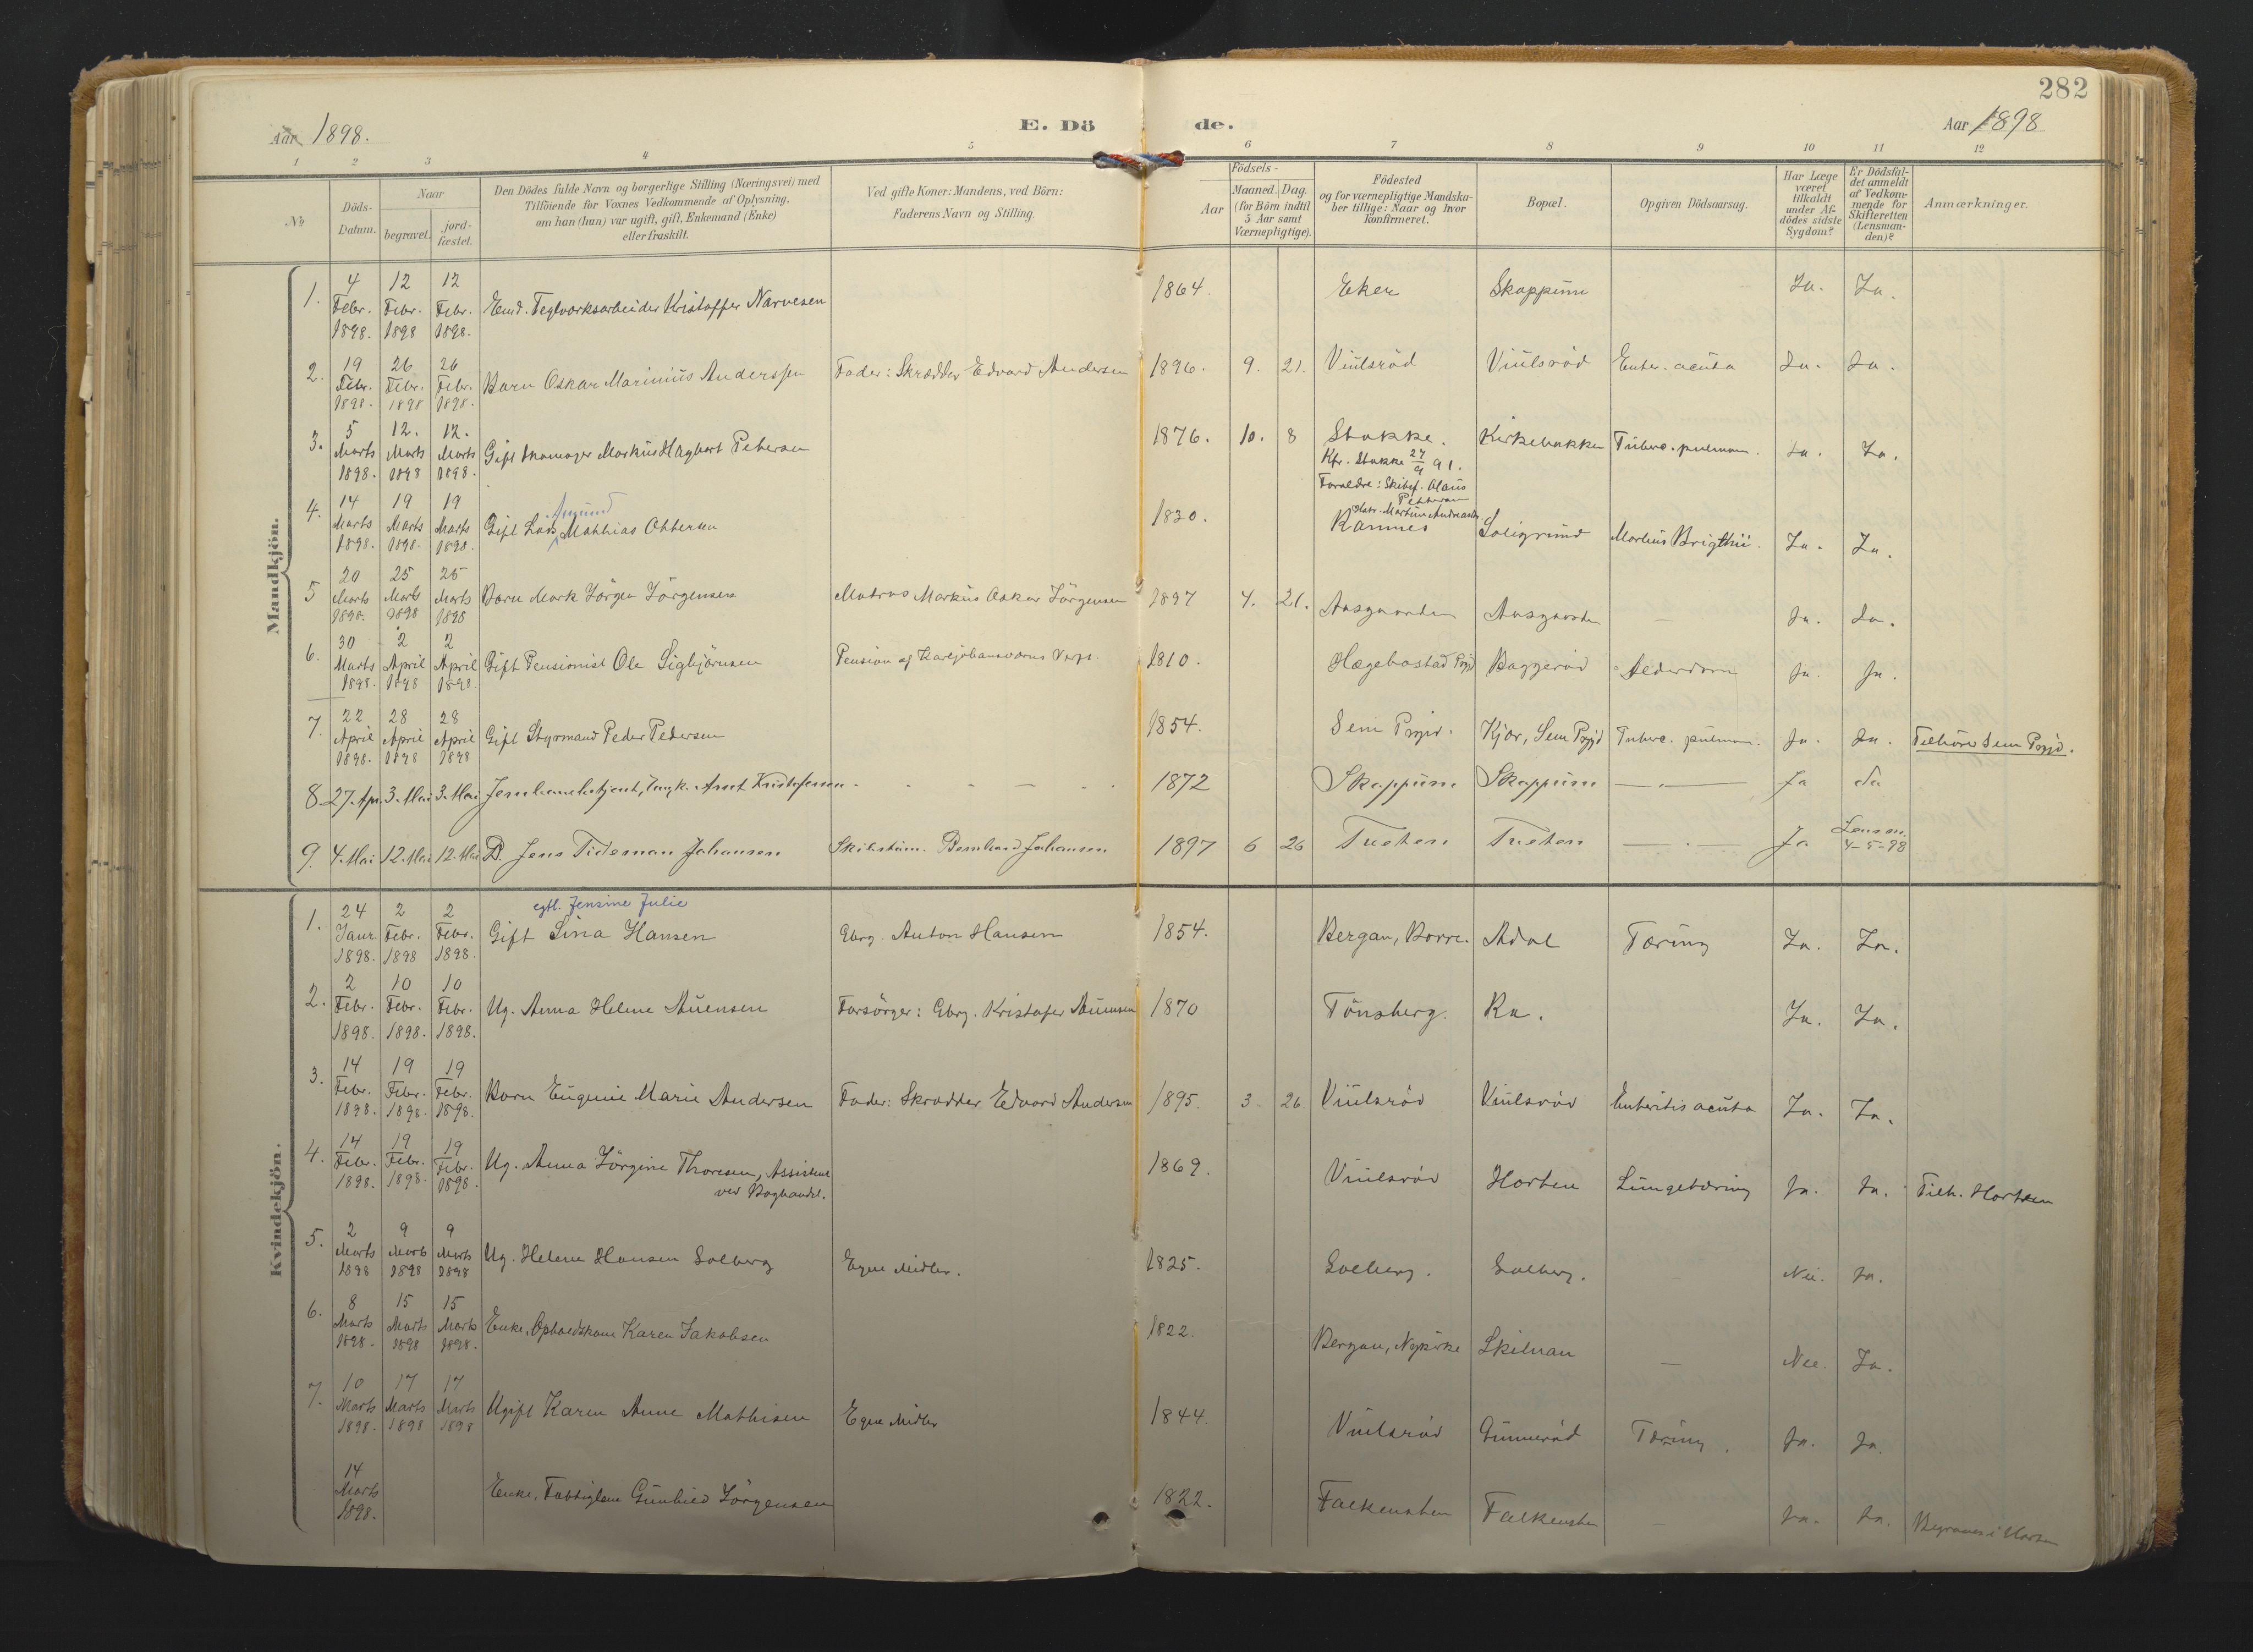 282
Aar 1898.
E. Döde.
Aar 1898
1 2 3 4 5 6 7 8 9 10 11 12
No
Döds-Datum.
Naar
begravet.
jord-fæstet.
Den Dödes fulde Navn og borgerlige Stilling (Næringsvei) med
Tilföiende for Voxnes Vedkommende af Oplysning,
om han (hun) var ugift, gift, Enkemand (Enke)
eller fraskilt.
Ved gifte Koner: Mandens, ved Börn:
Faderens Navn og Stilling.
Födsels-
Aar
Maaned. Dag.
(for Börn indtil
5 Aar samt
Værnepligtige).
Födested
og for værnepligtige Mandska-
ber tillige: Naar og hvor
Konfirmeret.
Bopæl.
Opgiven Dödsaarsag.
Har Læge
været
tilkaldt
under Af-
dödes sidste
Sygdom?
Er Dödsfal-
det anmeldt
af Vedkom-
mende for
Skifteretten
(Lensman-
den)?
Anmærkninger.
Mandkjön.
1. 4 Febr. 1898. 12 Febr. 1898 12 Febr. 1898. Teglværksarbeider Kristoffer Narvesen 1864. Eker Skoppum Ja. Ja.
2. 19 Febr. 1898. 26 Febr. 1898 26 Febr. 1898. Barn Oskar Marinius Anderssen Fader: Skrædder Edvard Andersen 1896. 9. 21. Viulsrød Viulsrød Enter. acuta Ja. Ja.
3. 5 Marts 1898. 12. Marts 1898 12. Marts 1898. Gift Skomager Markus Hagbart Petersen 1876. 10. 8 Stokke. Kirkebakken Tuberc. pulmon. Ja. Ja.
Kfr. Stokke 27/9 91.
Forældre: Skibsf. Olaus
Pettersen
4. 14 Marts 1898. 19 Marts 1898. 19 Marts 1898. Gift Lars Amund Mathias Ottersen 1830. Ramnes Soligrund Morbus Brigthii. Ja. Ja.
5 20 Marts 1898. 25 Marts 1898 25 Marts 1898 Barn Mark Jörgen Jörgensen Matros Markus Oskar Jörgensen 1897 4. 21. Aasgaarden Aasgaarden — Ja. Ja.
6. 30 Marts 1898. 2 April 1898 2 April 1898. Gift Pensionist Ole Sigbjörnsen Pension af Karljohansværns Verft. 1810. Hægebostad Prgjd Baggerød Alderdom Ja. Ja.
7. 22 April 1898. 28 April 1898 28 April 1898 Gift Styrmand Peder Pedersen 1854. Sem Prgjd. Kjær, Sem Prgjd Tuberc. pulmon. Ja. Ja. Tilhörer Sem Prgjd.
8 27. Apr. 3. Mai 3. Mai Arnt Kristofersen 1872 Skoppum Skoppum — Ja Ja
9. 4. Mai 12. Mai 12. Mai B. Jens Tideman Johansen Skibstöm. Bernhard Johansen 1897 6 26 Tueten Tueten — Ja Lensm. 4-5-98
Kvindekjön.
egtl. Jensine Julie
1. 24 Janr. 1898. 2 Febr. 1898 2 Febr. 1898. Gift Sina Hansen Gbrg. Anton Hansen 1854. Bergan, Borre. Adal Tæring Ja. Ja.
2. 2 Febr. 1898. 10 Febr. 1898. 10 Febr. 1898. Ug. Anna Helene Auensen Forsörger: Gbrg. Kristofer Auensen 1870 Tönsberg. Ra. Ja. Ja.
3. 14 Febr. 1898. 19 Febr. 1898. 19 Febr. 1898. Barn Eugenie Marie Andersen Fader: Skrædder Edvard Andersen 1895. 3 26. Viulsrød Viulsrød Enteritis acuta Ja. Ja.
4. 14 Febr. 1898. 19 Febr. 1898. 19 Febr. 1898. Ug. Anna Jörgine Thoresen, Assistent 1869. Viulsrød Horten Lungetæring Ja. Ja. Tilh. Horten
ved Boghandel.
5. 2 Marts 1898 9 Marts 1898 9 Marts 1898 Ug. Helene Hansen Solberg Egne Midler. 1825. Solberg. Solberg. — Nei. Ja.
6. 8 Marts 1898. 15 Marts 1898 15 Marts 1898. Enke, Opholdskone Karen Jakobsen 1822. Bergan, Nykirke Skilnan — Nei. Ja.
7. 10 Marts 1898. 17 Marts 1898 17 Marts 1898 Ugift Karen Anne Mathisen Egne Midler 1844. Viulsrød Gunnerød Tæring. Ja. Ja.
14 Marts 1898. Enke, Fattiglem Gunhild Jörgensen 1822. Falkensten Falkensten — Ja. Ja. Begraves i Horten